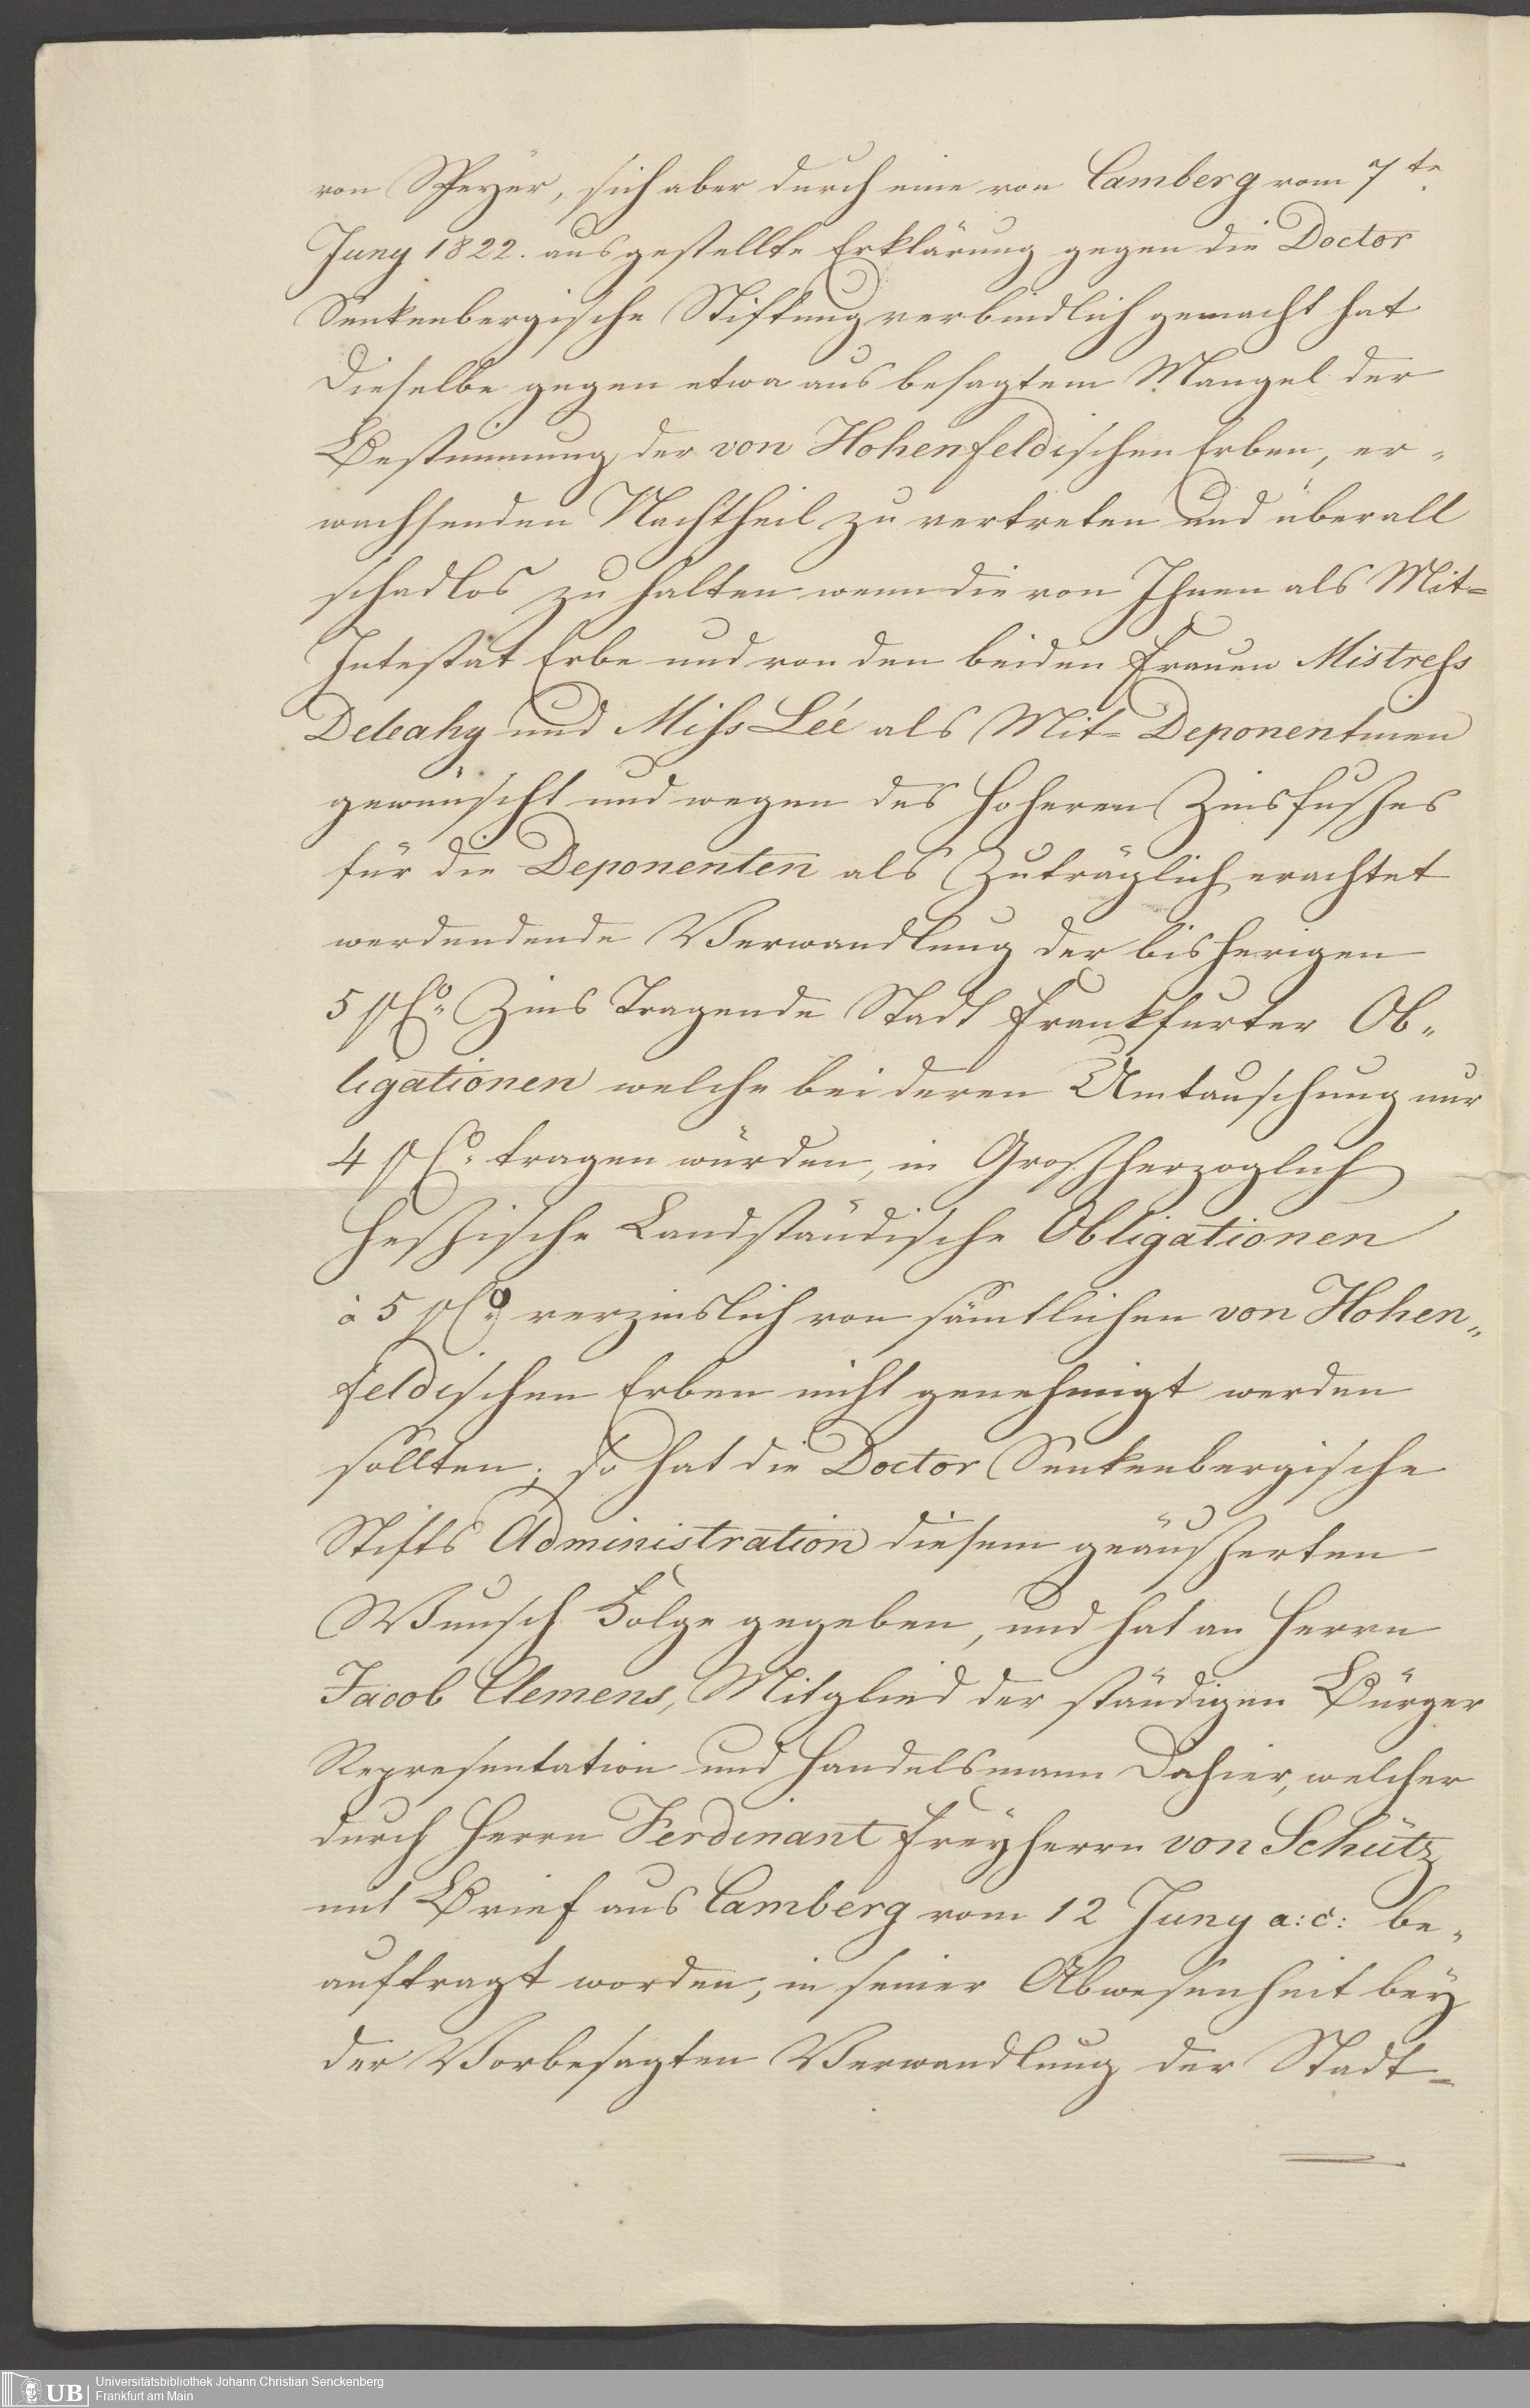 von Speyer, sich aber durch eine von Camberg vom 7te
Juny 1822. ausgestellte Erklärung gegen die Doctor
Senkenbergische Stiftung verbindlich gemacht hat
dieselbe gegen etwa aus besagtem Mangel der
Bestimmung der von Hohenfeldischen Erben, er„
wachsenden Nachtheil zu vertreten und überall
schadlos zu halten wenn die von Ihnen als Mit=
Intestat Erbe und von den beiden Frauen Mistreſs
Deleahy und Miſs Leé als Mit= Deponentinen
gewünscht und wegen des hoheren Zinsfußes
für die Deponenten als Zuträglich erachtet
werdendende Verwandlung der bisherigen
5 pCo Zins Tragende Stadt Frankfurter Ob„
ligationen welche bei deren Umtauschung nur
4 pCo tragen würden, in Großherzoglich
Heßische Landständische Obligationen
à 5 pCo verzinslich von sämtlichen von Hohen„
feldischen Erben nicht genehmigt werden
sollten; so hat die Doctor Senkenbergische
Stifts Administration diesem geäußerten
Wunsch Folge gegeben, und hat an Herrn
Jacob Clemens, Mitglied der ständigen Bürger
Representation und Handelsmann Dahier, welcher
durch Herrn Ferdinant Freyherrn von Schütz
mit Brief aus Camberg vom 12 Juny a: c: be„
auftragt worden, in seiner Abwesenheit bey
der Vorbesagten Verwandlung der Stadt=
UB
Universitätsbibliothek Johann Christian Senckenberg
Frankfurt am Main